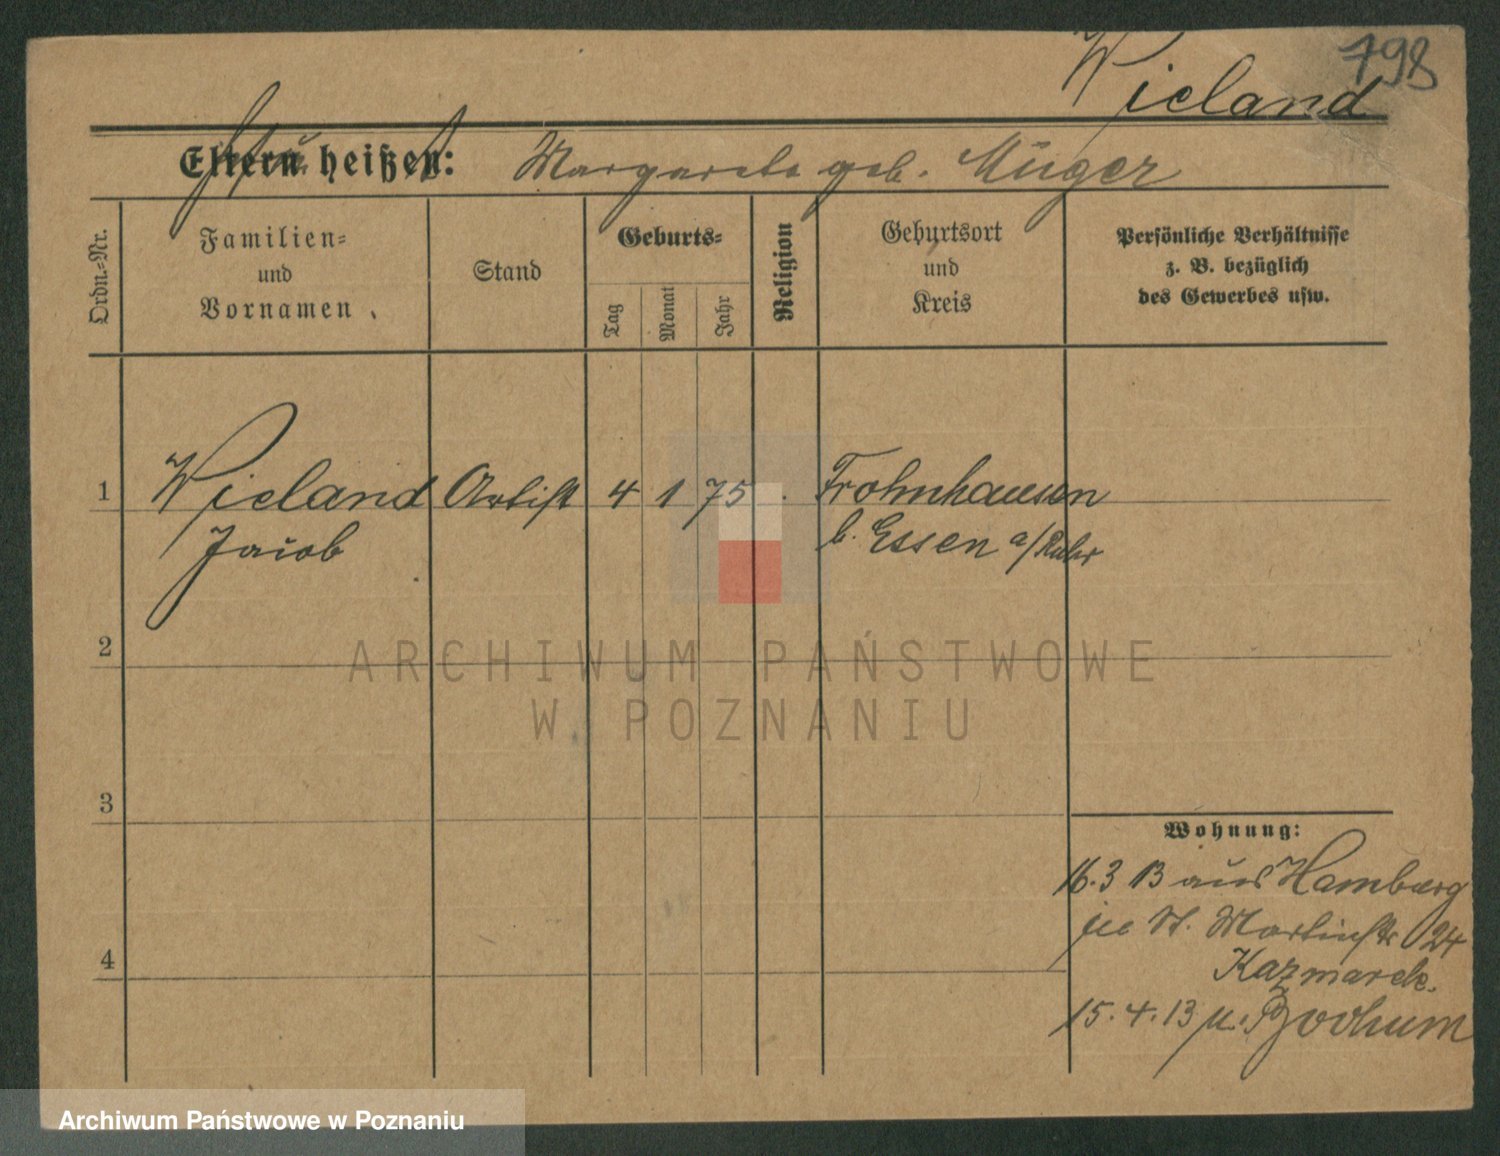 798
Wieland
Eltern heißen: Margarete geb. Müger
Ordn.-Nr.
Familien-
und
Vornamen
Stand
Geburts-
Tag
Monat
Jahr
Religion
Geburtsort
und
Kreis
Persönliche Verhältnisse
z. B. bezüglich
des Gewerbes usw.
1 Wieland Artist 4 1 75 Frohnhausen
Jacob b. Essen a/Ruhr
2
3
4
Wohnung:
16.3 13 aus Hamburg
St. Martinstr 24
Kazmarek.
15.4.13 n. Bochum
ARCHIWUM PAŃSTWOWE
W POZNANIU
Archiwum Państwowe w Poznaniu